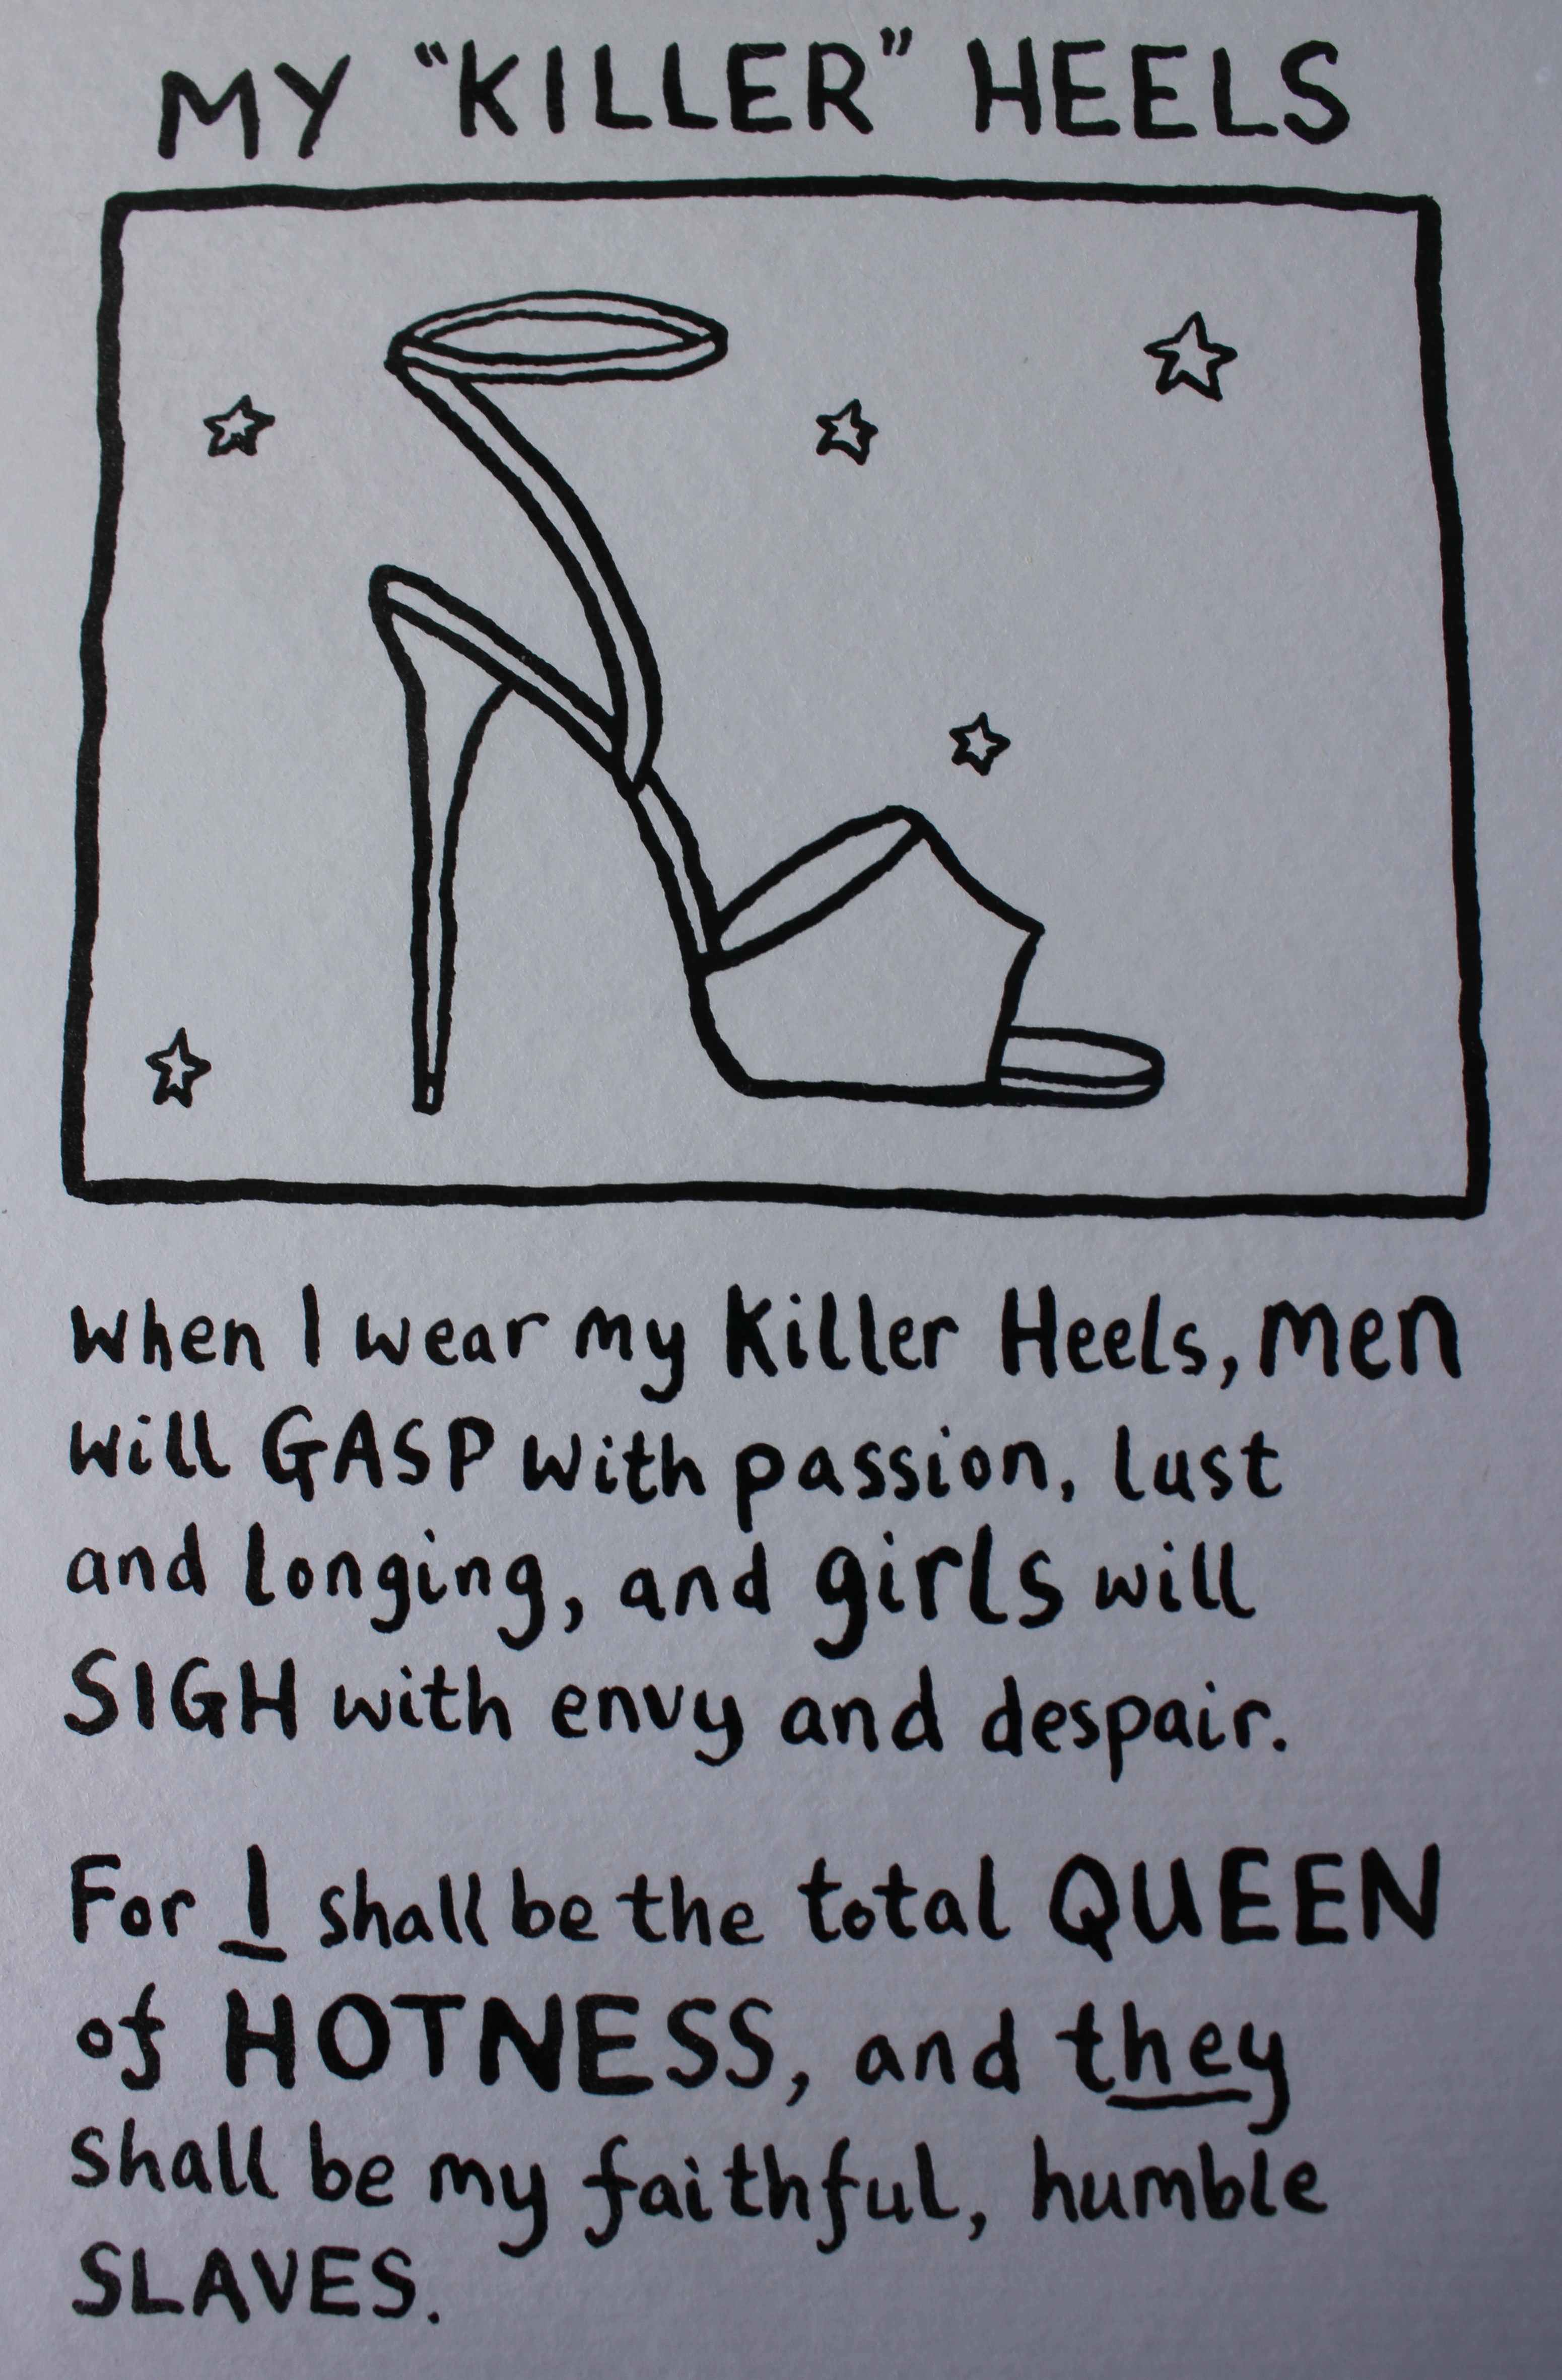 MY "KILLER" HEELS
When I wear my Killer Heels, men
will GASP with passion, lust
and longing, and girls will
SIGH with envy and despair.
For I shall be the total QUEEN
of HOTNESS, and they
shall be my faithful, humble
SLAVES.